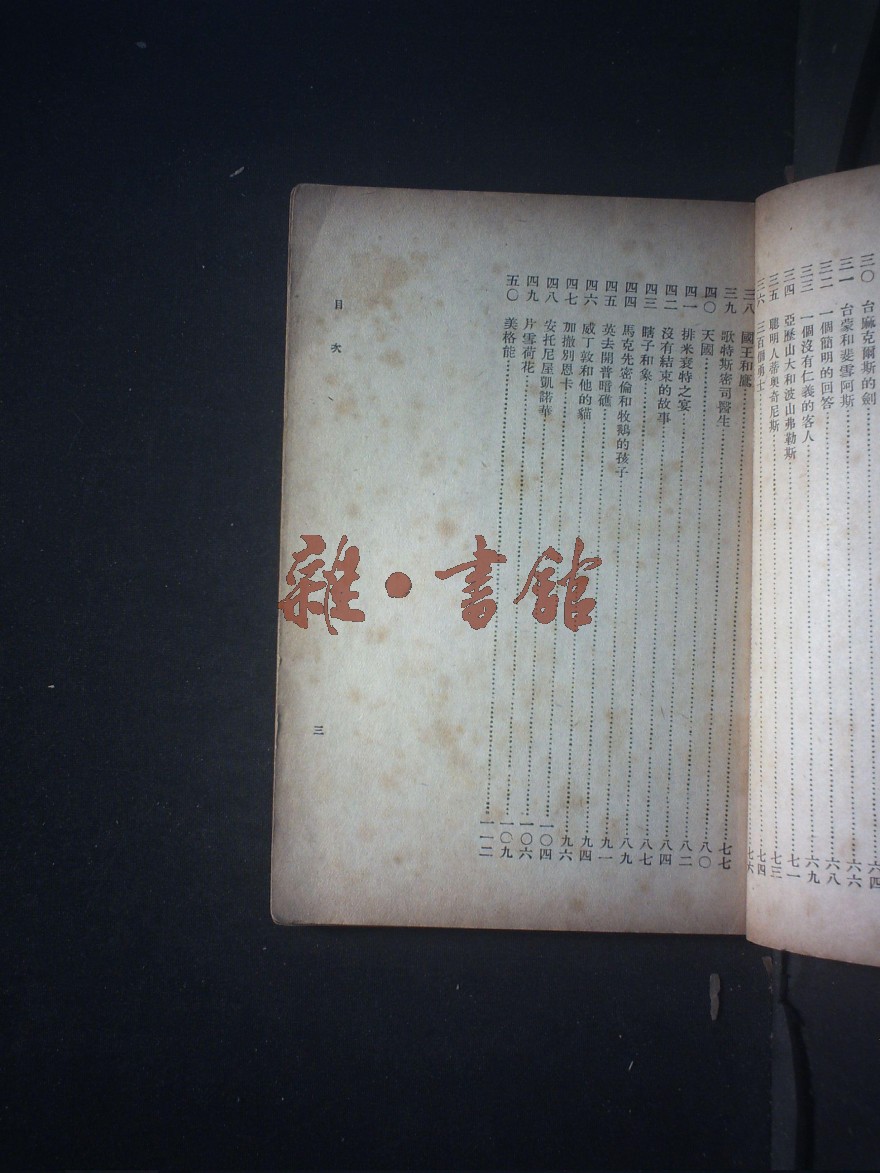 三〇 台麻克爾斯的劍……六四
三一 台蒙和斐雪阿斯……六六
三二 一個簡明的回答……六八
三三 一個沒有仁義的客人……六九
三四 亞歷山大和波山弗勒斯……七一
三五 聰明人蒂奧奇尼斯……七三
三六 三百個勇士……七四
三八 國王和鷹……七六
三九 歌特斯密司醫生……七七
四〇 天國……八〇
四一 排米衰特之宴……八二
四二 沒有結束的故事……八四
四三 瞎子和象……八七
四四 馬克先密倫和牧鵝的孩子……八九
四五 英去開普暗礁……九一
四六 威丁敦和他的貓……九四
四七 加撤別恩卡……九六
四八 安托尼屋凱諾華……一〇四
四九 片雪荷花……一〇六
五〇 美格能……一〇九
一一二
目次
三
雜·書館